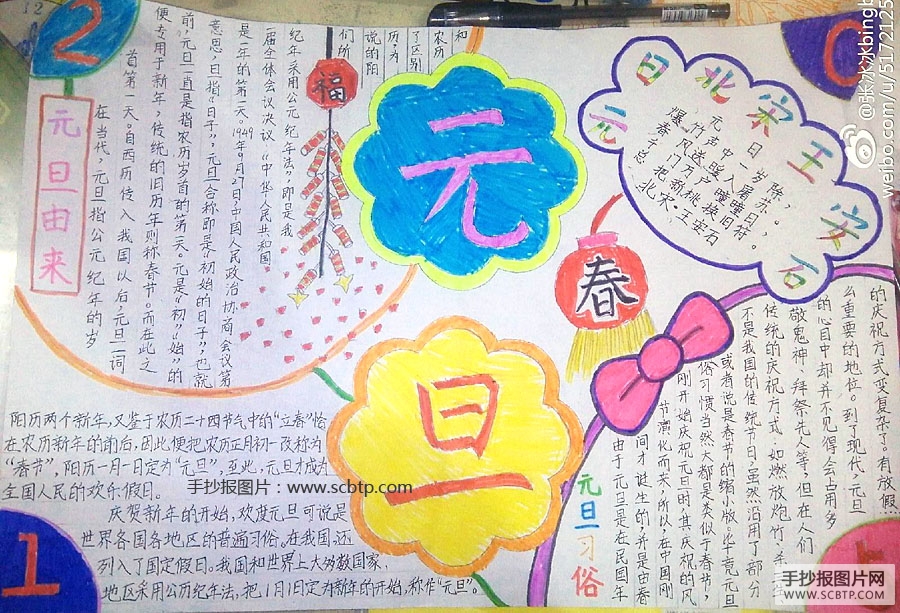 2
元旦由来
在当代,元旦指公元纪年的岁
首第一天。自西历传入我国以后,元旦一词
便专用于新年,传统的旧历年则称春节。而在此之
前,元旦一直是指农历岁首的第一天。元是“初”“始”的
意思,旦指“日子”,元旦合称即是“初始的日子”,也就
是一年的第一天。1949年9月27日,中国人民政治协商会议第
一届全体会议决议:“中华人民共和国
纪年采用公元纪年法”,即是我
们所
说的阳
历,为
了区别
历
和
阳历两个新年,又鉴于农历二十四节气中的“立春”恰
在农历新年的前后,因此便把农历正月初一改称为
“春节”,阳历一月一日定为“元旦”,至此,元旦才成为
全国人民的欢乐假日。
庆贺新年的开始,欢度元旦可说是
世界各国各地区的普遍习俗,在我国,还
列入了国定假日。我国和世界上大多数国家、
地区采用公历纪年法,把1月1日定为新年的开始,称作“元旦”。
1
福
元
旦
元日北宋王安石
元日
爆竹声中一岁除,
春风送暖入屠苏。
千门万户曈曈日,
总把新桃换旧符。
北宋·王安石
0
春
元旦习俗
由于元旦是在民国年
间才诞生的,并是由春
节演化而来,所以在中国
刚开始庆祝元旦时,其庆祝的风
俗习惯当然大都是类似于春节,
或者说是春节的缩小版。毕竟元旦
不是我国的传统节日,虽然沿用了部分
传统的庆祝方式,如燃放炮竹、杀三
敬鬼神、拜祭先人等,但在人们
的心目中却并不见得会占用多
么重要的地位。到了现代,元旦
的庆祝方式变复杂了。有放假
手抄报图片:www.scbtp.com
手抄报图片网
WWW.SCBTP.COM
weibo.com/u/51721125